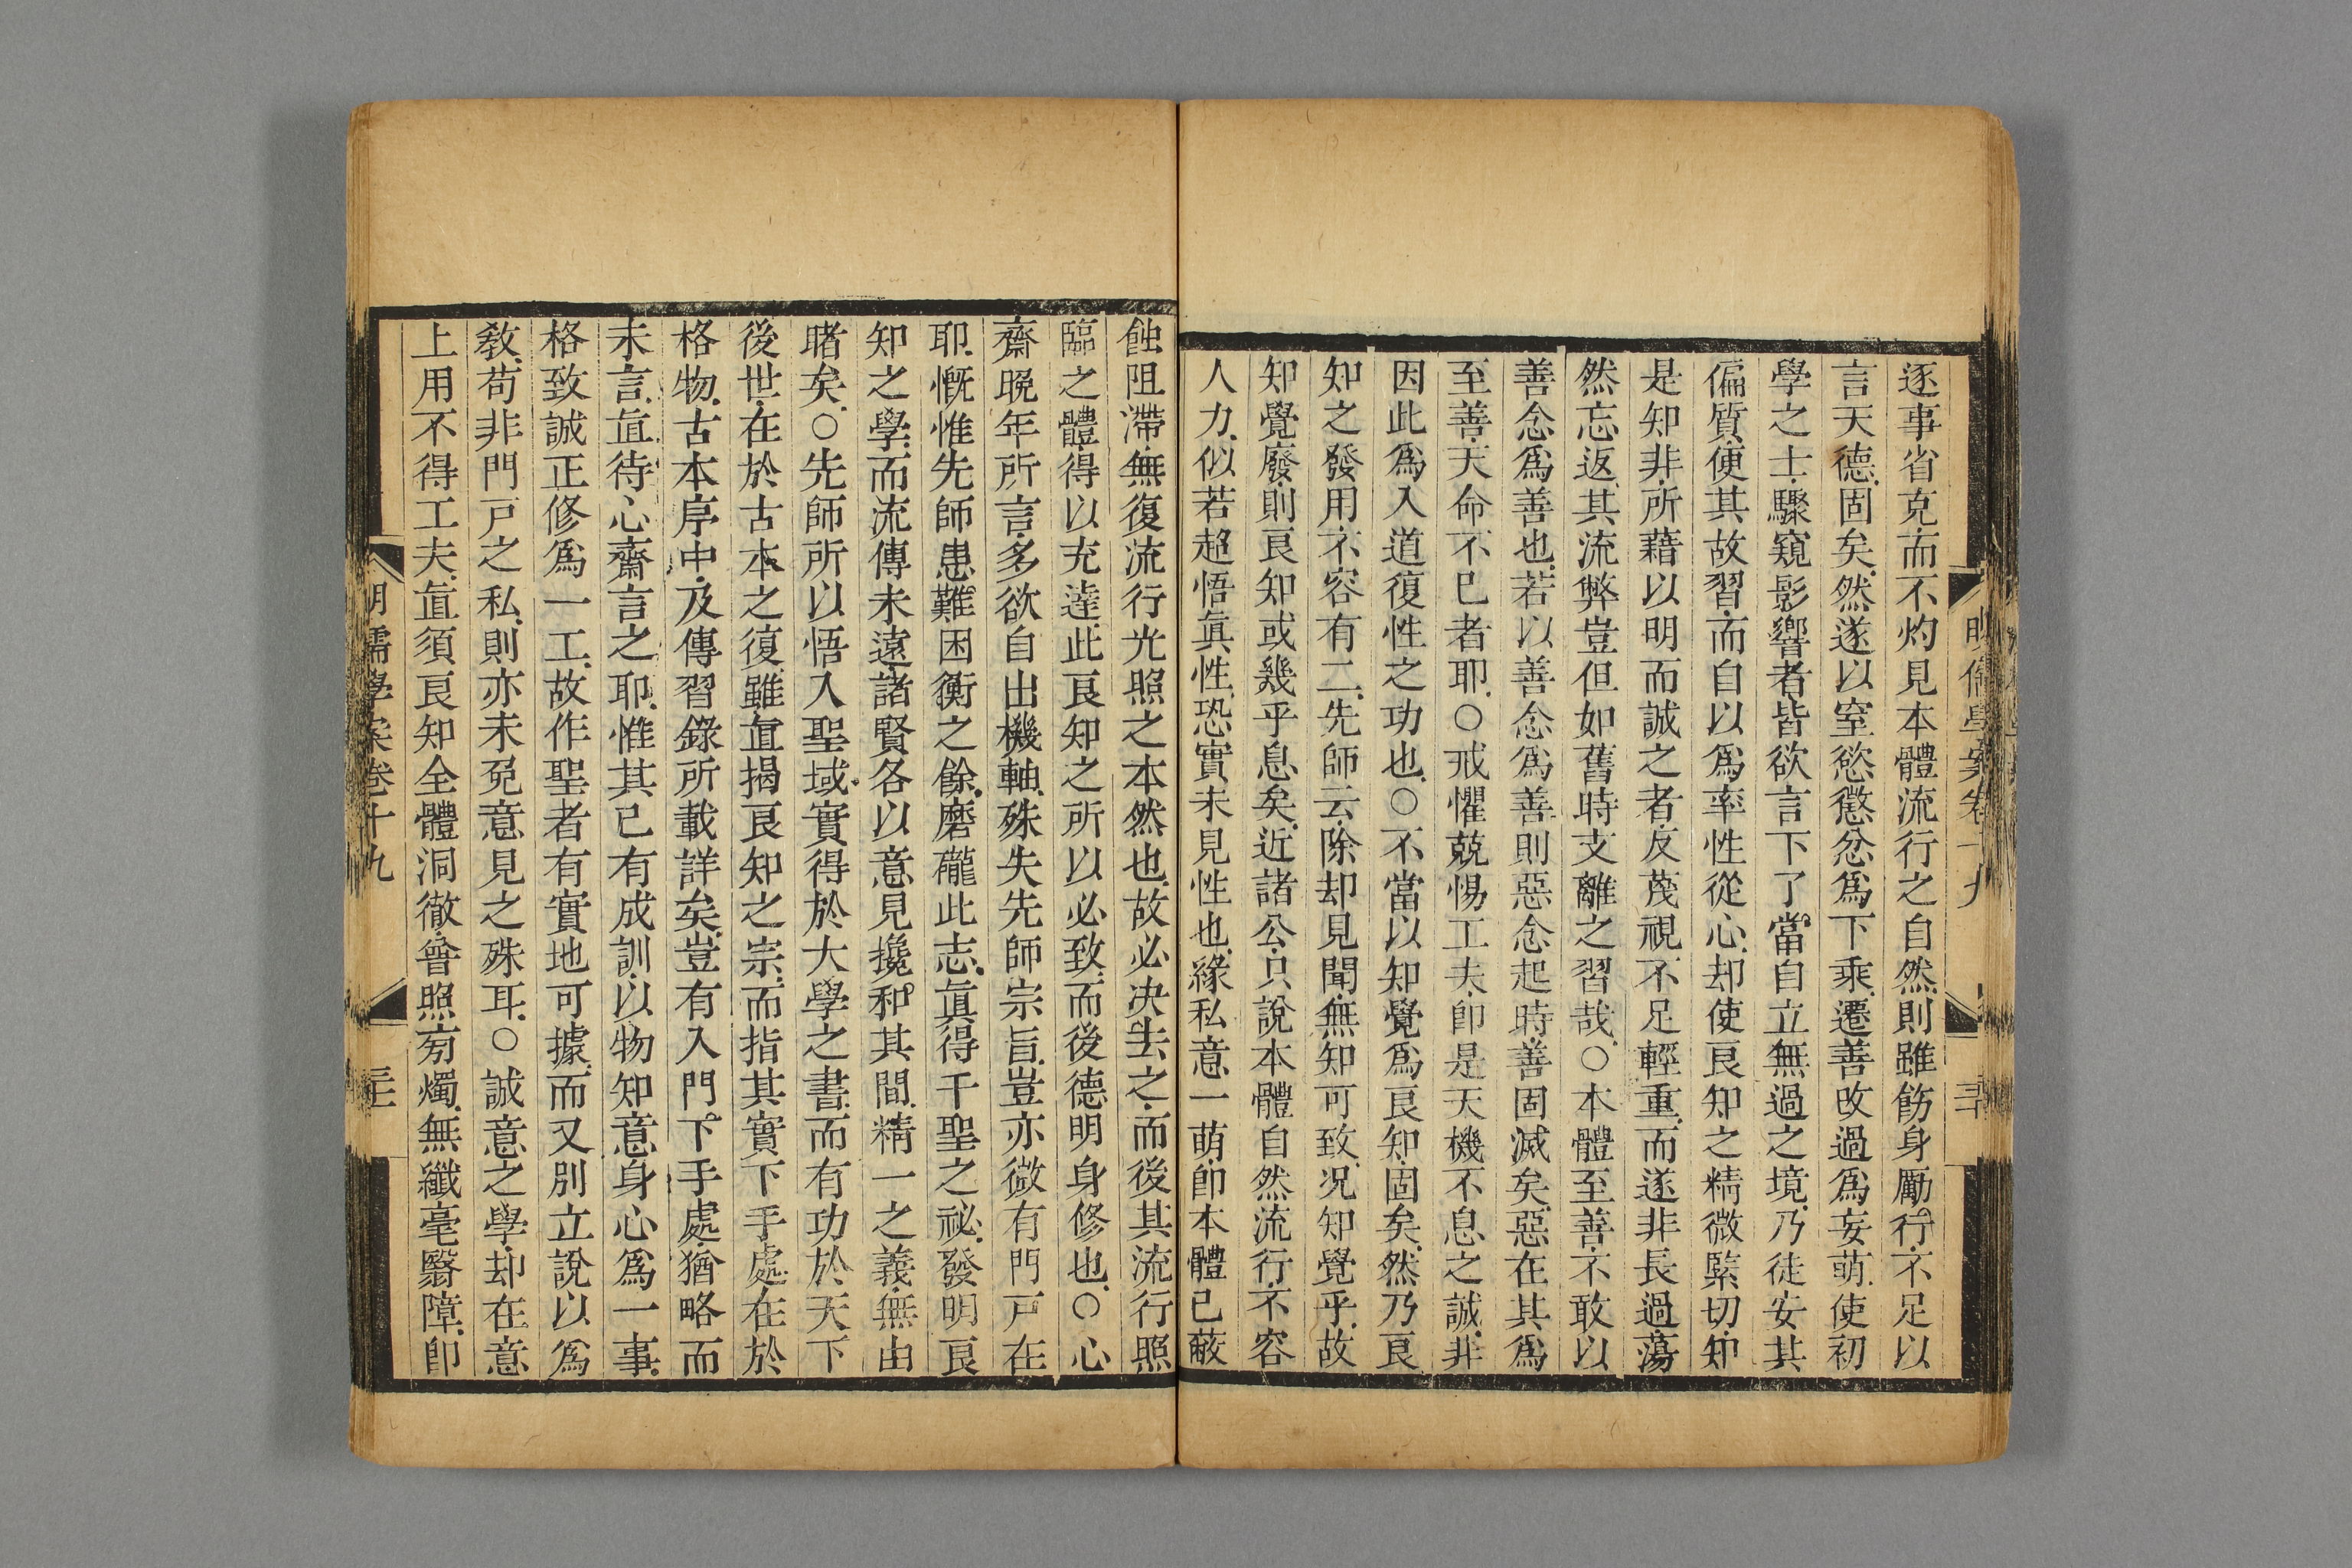 明儒學案卷十九
三十
逐事省克而不灼見本體流行之自然則雖飭身勵行不足以
言天德固矣然遂以窒慾懲忿爲下乘遷善改過爲妄萌使初
學之士驟窺影響者皆欲言下了當自立無過之境乃徒安其
偏質便其故習而自以爲率性從心却使良知之精微緊切知
是知非所藉以明而誠之者反蔑視不足輕重而遂非長過蕩
然忘返其流弊豈但如舊時支離之習哉○本體至善不敢以
善念爲善也若以善念爲善則惡念起時善固滅矣惡在其爲
至善天命不已者耶○戒懼兢惕工夫卽是天機不息之誠非
因此爲入道復性之功也○不當以知覺爲良知固矣然乃良
知之發用不容有二先師云除却見聞無知可致况知覺乎故
知覺廢則良知或幾乎息矣近諸公只說本體自然流行不容
人力似若超悟眞性恐實未見性也緣私意一萌卽本體已蔽
蝕阻滯無復流行光照之本然也故必决去之而後其流行照
臨之體得以充達此良知之所以必致而後德明身修也○心
齋晚年所言多欲自出機軸殊失先師宗旨豈亦微有門戸在
耶慨惟先師患難困衡之餘磨礲此志眞得千聖之祕發明良
知之學而流傳未遠諸賢各以意見攙和其間精一之義無由
睹矣○先師所以悟入聖域實得於大學之書而有功於天下
後世在於古本之復雖直揭良知之宗而指其實下手處在於
格物古本序中及傳習錄所載詳矣豈有入門下手處猶略而
未言直待心齋言之耶惟其已有成訓以物知意身心爲一事
格致誠正修爲一工故作聖者有實地可據而又別立說以爲
敎苟非門戸之私則亦未免意見之殊耳○誠意之學却在意
上用不得工夫直須良知全體洞徹普照旁燭無纖毫翳障卽
明儒學案卷十九
三十一